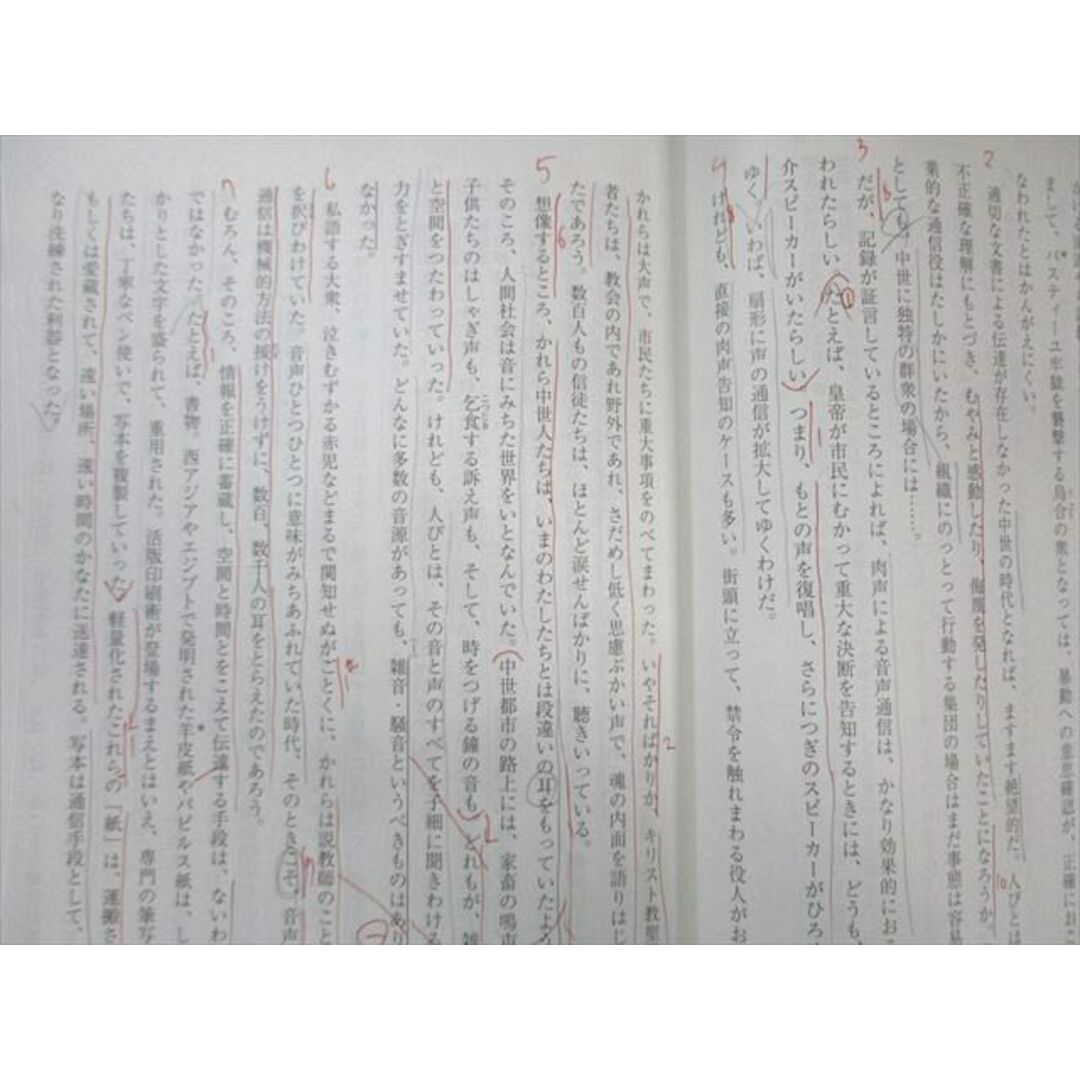 まして、バスティーユ牢獄を襲撃する烏合の衆となっては、暴動への意思確認が、正確におこ
なわれたとはかんがえにくい。
2 適切な文書による伝達が存在しなかった中世の時代となれば、ますます絶望的だ。人びとは
不正確な理解にもとづき、むやみと感動したり、侮蔑を発したりしていたことになろうか。
業的な通信役はたしかにいたから、組織にのっとって行動する集団の場合はまだ事態は容易
としても、中世に独特の群衆の場合には……。
3 だが、記録が証言しているところによれば、肉声による音声通信は、かなり効果的にお
われたらしい。たとえば、皇帝が市民にむかって重大な決断を告知するときには、どうも、
介スピーカーがいたらしい。つまり、もとの声を復唱し、さらにつぎのスピーカーがひろ
ゆく。いわば、扇形に声の通信が拡大してゆくわけだ。
4 けれども、直接の肉声告知のケースも多い。街頭に立って、禁令を触れまわる役人がお
かれらは大声で、市民たちに重大事項をのべてまわった。いやそればかりか、キリスト教聖
者たちは、教会の内であれ野外であれ、さだめし低く思慮ぶかい声で、魂の内面を語りはじ
たであろう。数百人もの信徒たちは、ほとんど涙せんばかりに、聴きいっている。
5 想像するところ、かれら中世人たちは、いまのわたしたちとは段違いの耳をもっていたよ
そのころ、人間社会は音にみちた世界をいとなんでいた。中世都市の路上には、家畜の鳴声
子供たちのはしゃぎ声も、乞食する訴え声も、そして、時をつげる鐘の音も。どれもが、雑
と空間をつたわっていった。けれども、人びとは、その音と声のすべてを子細に聞きわける
力をとぎすませていた。どんなに多数の音源があっても、雑音・騒音というべきものはあり
なかった。
6 私語する大衆、泣きむずかる赤児などまるで関知せぬがごとくに、かれらは説教師のこと
を択びわけていた。音声ひとつひとつに意味がみちあふれていた時代、そのときこそ、音声
通信は機械的方法の援けをうけずに、数百、数千人の耳をとらえたのであろう。
7 むろん、そのころ、情報を正確に蓄蔵し、空間と時間とをこえて伝達する手段は、ないわ
ではなかった。たとえば、書物。西アジアやエジプトで発明された羊皮紙やパピルス紙は、し
かりとした文字を盛られて、重用された。活版印刷術が登場するまえとはいえ、専門の筆写
たちは、丁寧なペン使いで、写本を複製していった。軽量化されたこれらの「紙」は、運搬さ
もしくは愛蔵されて、遠い場所、遠い時間のかなたに送達される。写本は通信手段として、
なり洗練された利器となった。